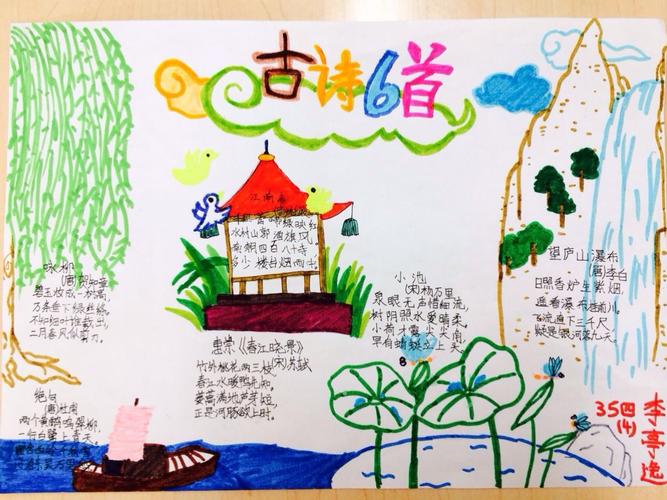 古诗6首
江南春
千里莺啼绿映红
水村山郭酒旗风,
南朝四百八十寺
多少楼台烟雨中
咏柳
(唐)贺知章
碧玉妆成一树高,
万条垂下绿丝绦。
不知细叶谁裁出,
二月春风似剪刀。
小池
(宋)杨万里
泉眼无声惜细流,
树阴照水爱晴柔。
小荷才露尖尖角,
早有蜻蜓立上头
望庐山瀑布
(唐)李白
日照香炉生紫烟,
遥看瀑布挂前川。
飞流直下三千尺,
疑是银河落九天。
惠崇《春江晓景》
(宋)苏轼
竹外桃花两三枝
春江水暖鸭先知,
蒌蒿满地芦芽短,
正是河豚欲上时。
绝句
(唐)杜甫
两个黄鹂鸣翠柳,
一行白鹭上青天。
李亭逸
35 四(4)